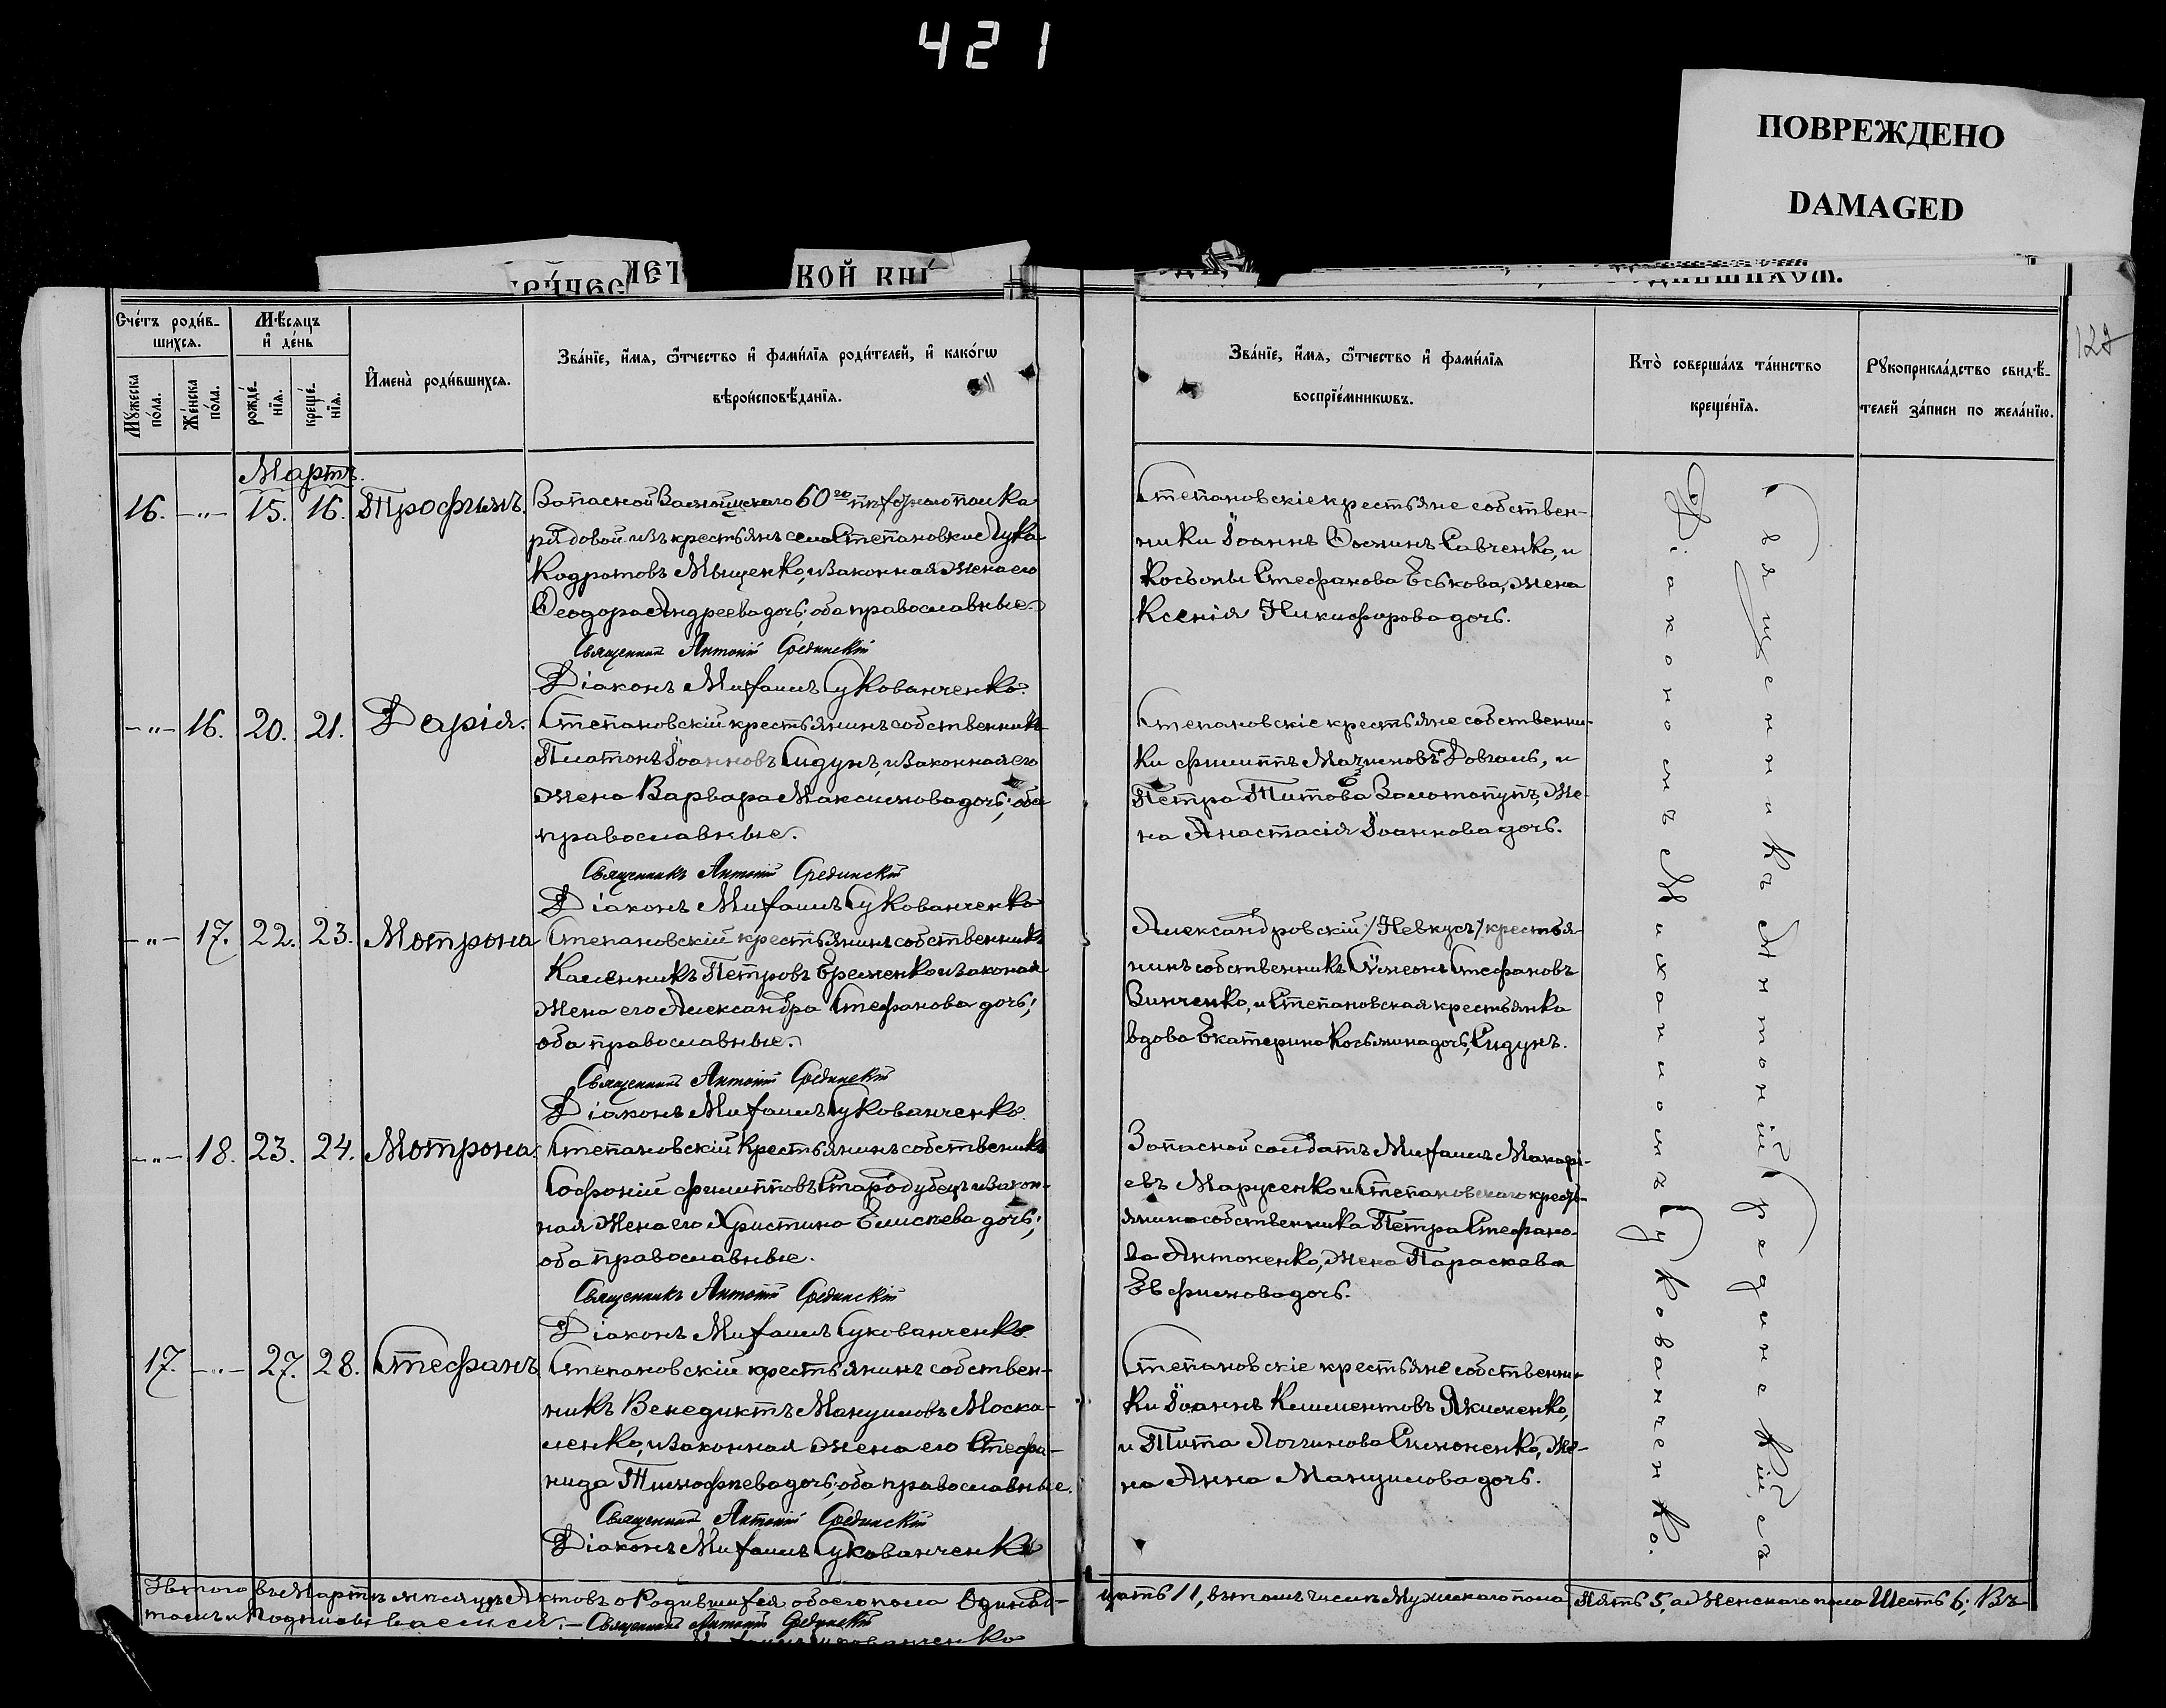 421
ПОВРЕЖДЕНО
DAMAGED
КОЙ КНИ
129
Сче́тъ роди́в-
шихся.
Мѣ́сяцъ
и҆ де́нь
И҆мена̀ роди́вшихся.
Зва́нїе, и҆́мя, ѿтчество и҆ фами́лїя роди́телей, и҆ како́гѡ
вѣроисповѣ́данїя.
Мꙋжеска
по́ла.
Же́нска
по́ла.
рожде́-
нїя.
креще́-
нїя.
Зва́нїе, и҆́мя, ѿтчество и҆ фами́лїя
воспрїе́мникѡвъ.
Кто̀ соверша́лъ та́инство
креще́нїя.
Рꙋкоприкла́дство свидѣ́-
телей за́писи по жела́нїю.
Мартъ.
16. -"- 15. 16. Трофимъ.
Запасной Замойцскаго 60го пѣхотнаго полка
рядовой изъ крестьянъ села Степановки Лука
Кодратовъ Мыщенко, и законная жена его
Ѳеодора Андреева дочь; оба православные.
Священникъ Антоній Срединскій
Діаконъ Михаилъ Сукованченко.
Степановскіе крестьяне собствен-
ники Іоаннъ Ѳоминъ Савченко, и
Косьмы Стефанова Еськова, жена
Ксенія Никифорова дочь.
-"- 16. 20. 21. Дарія.
Степановскій крестьянинъ собственникъ
Платонъ Іоанновъ Сидунъ, и законная его
жена Варвара Максимова дочь; оба
православные.
Священникъ Антоній Срединскій
Діаконъ Михаилъ Сукованченко
Степановскіе крестьяне собственни-
ки Филиппъ Довгаль, и
Петра Титова Золотопупъ, же-
на Анастасія Іоаннова дочь.
-"- 17. 22. 23. Мотрона
Степановскій крестьянинъ собственникъ
Каленникъ Петровъ Еременко и законная
жена его Александра Стефанова дочь;
оба православные.
Священникъ Антоній Срединскій
Діаконъ Михаилъ Сукованченко.
Александровскій /Невкусъ/ крестья-
нинъ собственникъ Сѵмеонъ Стефановъ
Винченко, и Степановская крестьянка
вдова Екатерина Косьмина дочь, Сидунъ.
-"- 18. 23. 24. Мотрона.
Степановскій крестьянинъ собственникъ
Софроній Филипповъ Стародубецъ и закон-
ная жена его Христина Елисеева дочь;
оба православные.
Священникъ Антоній Срединскій
Діаконъ Михаилъ Сукованченко.
Запасной солдатъ Михаилъ Макарі-
евъ Марусенко и Степановскаго кресть-
янина собственника Петра Стефано-
ва Антоненко, жена Параскева
Евфимова дочь.
17. -"- 27. 28. Стефанъ
Степановскій крестьянинъ собствен-
никъ Венедиктъ Мануиловъ Моска-
ленко, и законная жена его Стефа-
нида Тимофеева дочь; оба православные.
Священникъ Антоній Срединскій
Діаконъ Михаилъ Сукованченко
Степановскіе крестьяне собственни-
ки Іоаннъ Климентовъ Якименко,
и Тита Логгинова Симоненко, же-
на Анна Мануилова дочь.
Священникъ Антоній Срединскій съ
Діакономъ Михаиломъ Сукованченко.
Итого въ Мартѣ мѣсяцѣ Актовъ о Родившихся обоего пола Одинад-
цать 11, въ томъ числѣ Мужскаго пола Пять 5, а Женскаго пола Шесть 6; Въ
томъ и Подписываемся. — Священникъ Антоній Срединскій